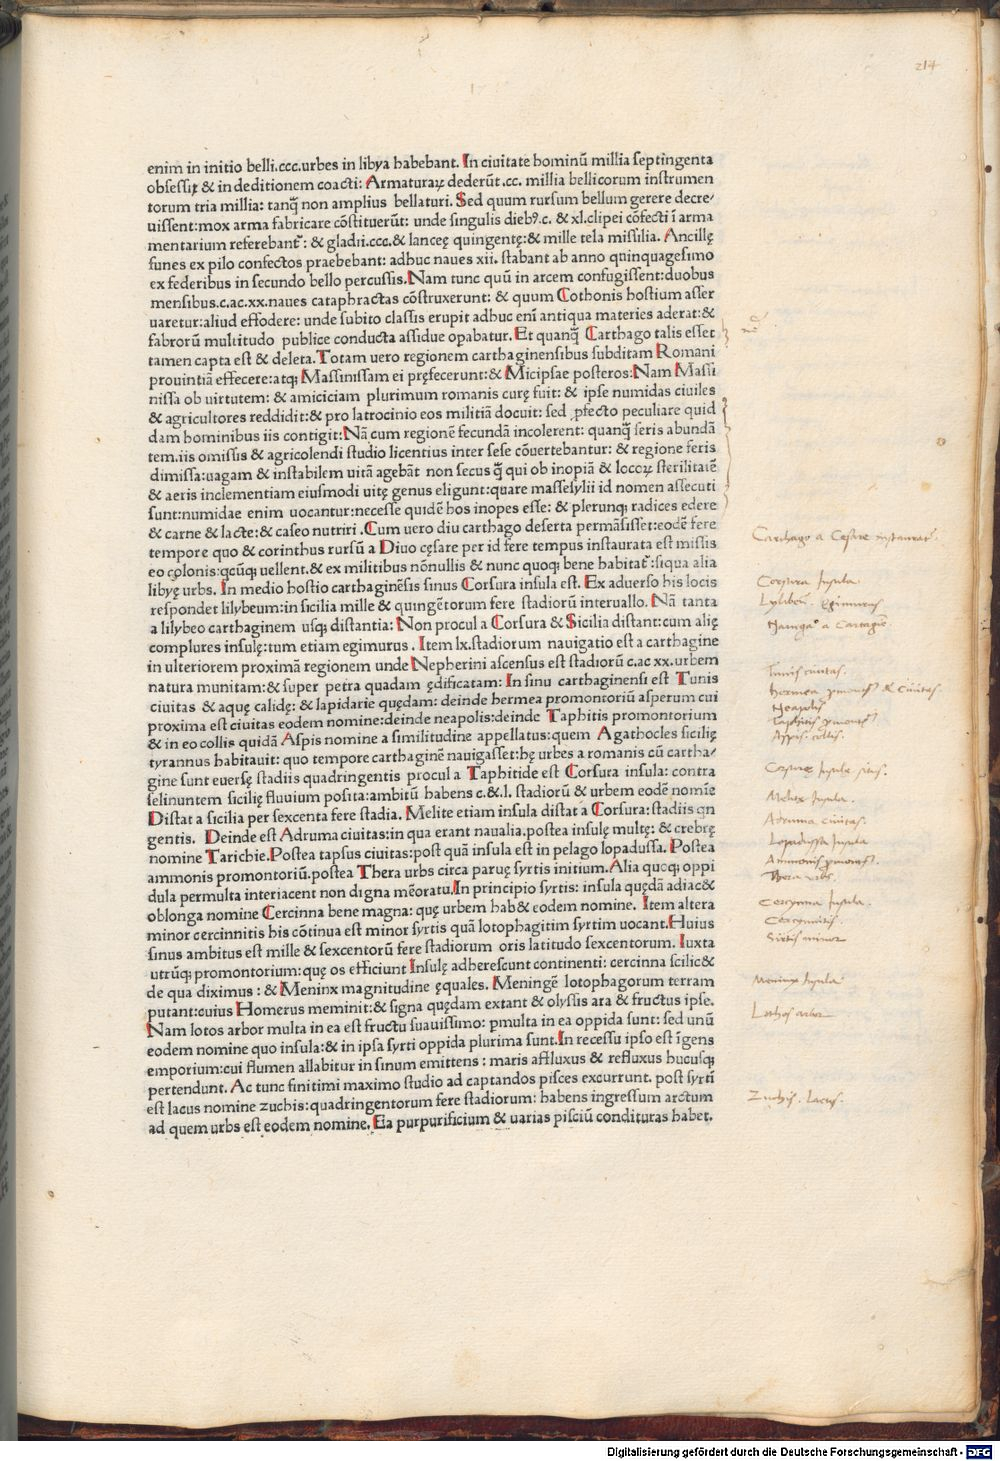 214
enim in initio belli.ccc.urbes in libya habebant. In ciuitate hominũ millia septingenta
obsessiꝶ & in deditionem coacti: Armaturaꝶ dederũt .cc. millia bellicorum instrumen
torum tria millia: tanq̃ non amplius bellaturi. Sed quum rursum bellum gerere decre⸗
uissent:mox arma fabricare cõstituerũt: unde singulis dieb9.c. & xl.clipei cõfecti ĩ arma
mentarium referebant᷑: & gladii.ccc.& lanceę quingentę:& mille tela missilia. Ancillę
funes ex pilo confectos praebebant: adhuc naues xii. stabant ab anno quinquagesimo
ex federibus in secundo bello percussis. Nam tunc quũ in arcem confugissent:duobus
mensibus.c.ac.xx.naues cataphractas cõstruxerunt: & quum Cothonis hostium asser
uaretur:aliud effodere: unde subito classis erupit adhuc enĩ antiqua materies aderat:&
fabrorũ multitudo publice conducta assidue opabatur. Et quanq̃ Carthago talis esset
tamen capta est & deleta. Totam uero regionem carthaginensibus subditam Romani
prouintiã effecere:atq; Massinissam ei pręfecerunt:& Micipsae posteros: Nam Massi
nissa ob uirtutem: & amiciciam plurimum romanis curę fuit: & ipse numidas ciuiles
& agricultores reddidit:& pro latrocinio eos militiã docuit: sed ꝓfecto peculiare quid
dam hominibus iis contigit: Nã cum regionẽ fecundã incolerent: quanq̃ feris abundã
tem.iis omissis & agricolendi studio licentius inter sese cõuertebantur: & regione feris
dimissa:uagam & instabilem uitã agebãt non secus q̃ qui ob inopiã & locoꝶ sterilitaiẽ
& aeris inclementiam eiusmodi uitę genus eligunt:quare massesylii id nomen assecuti
sunt:numidae enim uocantur:necesse quidẽ hos inopes esse: & plerunq; radices edere
& carne & lacte:& caseo nutriri .Cum uero diu carthago deserta permãsisset:eodẽ fere
tempore quo & corinthus rursũ a Diuo cęsare per id fere tempus instaurata est missis
eo colonis:qcũq; uellent.& ex militibus nõnullis & nunc quoq; bene habitat᷑:siqua alia
libyę urbs. In medio hostio carthaginẽsis sinus Corsura insula est. Ex aduerso his locis
respondet lilybeum:in sicilia mille & quingẽtorum fere stadiorũ interuallo. Nã tanta
a lilybeo carthaginem usq; distantia: Non procul a Corsura & Sicilia distant:cum alię
complures insulę:tum etiam egimurus . Item lx.stadiorum nauigatio est a carthagine
in ulteriorem proximã regionem unde Nepherini ascensus est stadiorũ c.ac xx.urbem
natura munitam:& super petra quadam ędificatam: In sinu carthaginensi est Tunis
ciuitas & aquę calidę: & lapidarie quędam: deinde hermea promontoriũ asperum cui
proxima est ciuitas eodem nomine:deinde neapolis:deinde Taphitis promontorium
& in eo collis quidã Aspis nomine a similitudine appellatus:quem Agathocles sicilię
tyrannus habitauit: quo tempore carthaginẽ nauigasset:hę urbes a romanis cũ cartha⸗
gine sunt euersę stadiis quadringentis procul a Taphitide est Corsura insula: contra
selinuntem sicilię fluuium posita:ambitũ habens c.&.l. stadiorũ & urbem eodẽ nomĩe
Distat a sicilia per sexcenta fere stadia. Melite etiam insula distat a Corsura: stadiis qn
gentis. Deinde est Adruma ciuitas:in qua erant naualia.postea insulę multę: & crebrę
nomine Tarichie.Postea tapsus ciuitas:post quã insula est in pelago lopadussa. Postea
ammonis promontoriũ.postea Thera urbs circa paruę syrtis initium.Alia quoq; oppi
dula permulta interiacent non digna mẽoratu.In principio syrtis: insula quędã adiac&
oblonga nomine Cercinna bene magna: quę urbem hab& eodem nomine. Item altera
minor cercinnitis his cõtinua est minor syrtis quã lotophagitim syrtim uocant.Huius
sinus ambitus est mille & sexcentorũ fere stadiorum oris latitudo sexcentorum. Iuxta
utrũq; promontorium:quę os efficiunt Insulę adherescunt continenti: cercinna scilic&
de qua diximus : & Meninx magnitudine ęquales. Meningẽ lotophagorum terram
putant:cuius Homerus meminit:& signa quędam extant & olyssis ara & fructus ipse.
Nam lotos arbor multa in ea est fructu suauissimo: ꝑmulta in ea oppida sunt: sed unũ
eodem nomine quo insula:& in ipsa syrti oppida plurima sunt.In recessu ipso est ĩgens
emporium:cui flumen allabitur in sinum emittens : maris affluxus & refluxus hucusq;
pertendunt. Ac tunc finitimi maximo studio ad captandos pisces excurrunt. post syrtĩ
est lacus nomine zuchis:quadringentorum fere stadiorum: habens ingressum arctum
ad quem urbs est eodem nomine. Ea purpurificium & uarias pisciũ condituras habet.
Carthago a Cesare instaurat᷑.
Corsura Insula.
Lylibeũ. Egimurus
Nauiga° a Cartagie
Tunis ciuitas.
hermea ꝓmont. & Ciuitas.
Neapolis
Taphitis ꝓmont.
Aspis. collis.
Corsurę Insule situs.
Melite Insula.
Adruma ciuitas.
Lopadussa Insula
Ammonis ꝓmont.
Thera urbs.
Cercinna Insula.
Cercinnitis.
Sirtis minor
Meninx Insula
Lothos arbor
Zuchis. Lacus.
Digitalisierung gefördert durch die Deutsche Forschungsgemeinschaft - DFG